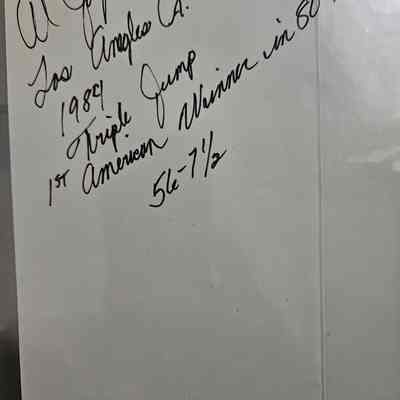 Al
Los Angles CA.
1984
Triple Jump
1st American Winner in 80
56-7 1/2